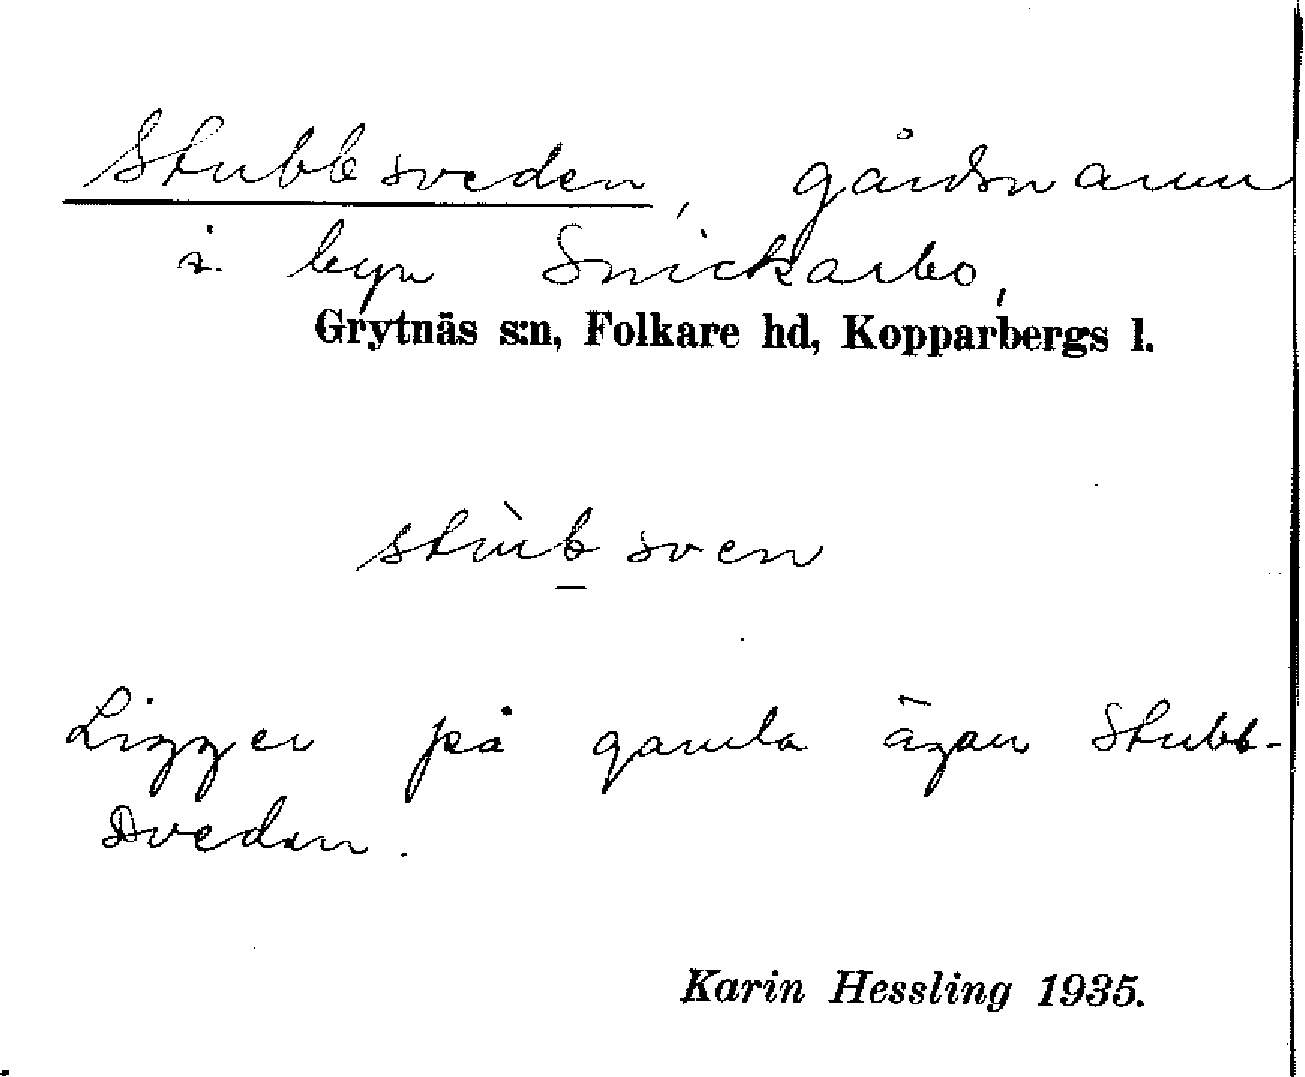 Stubbsveden, gårdsnamn
i byn Snickarbo,
Grytnäs s:n, Folkare hd, Kopparbergs l.
stùb̲sven
Ligger på gamla ägan Stubb-
sveden.
Karin Hessling 1935.